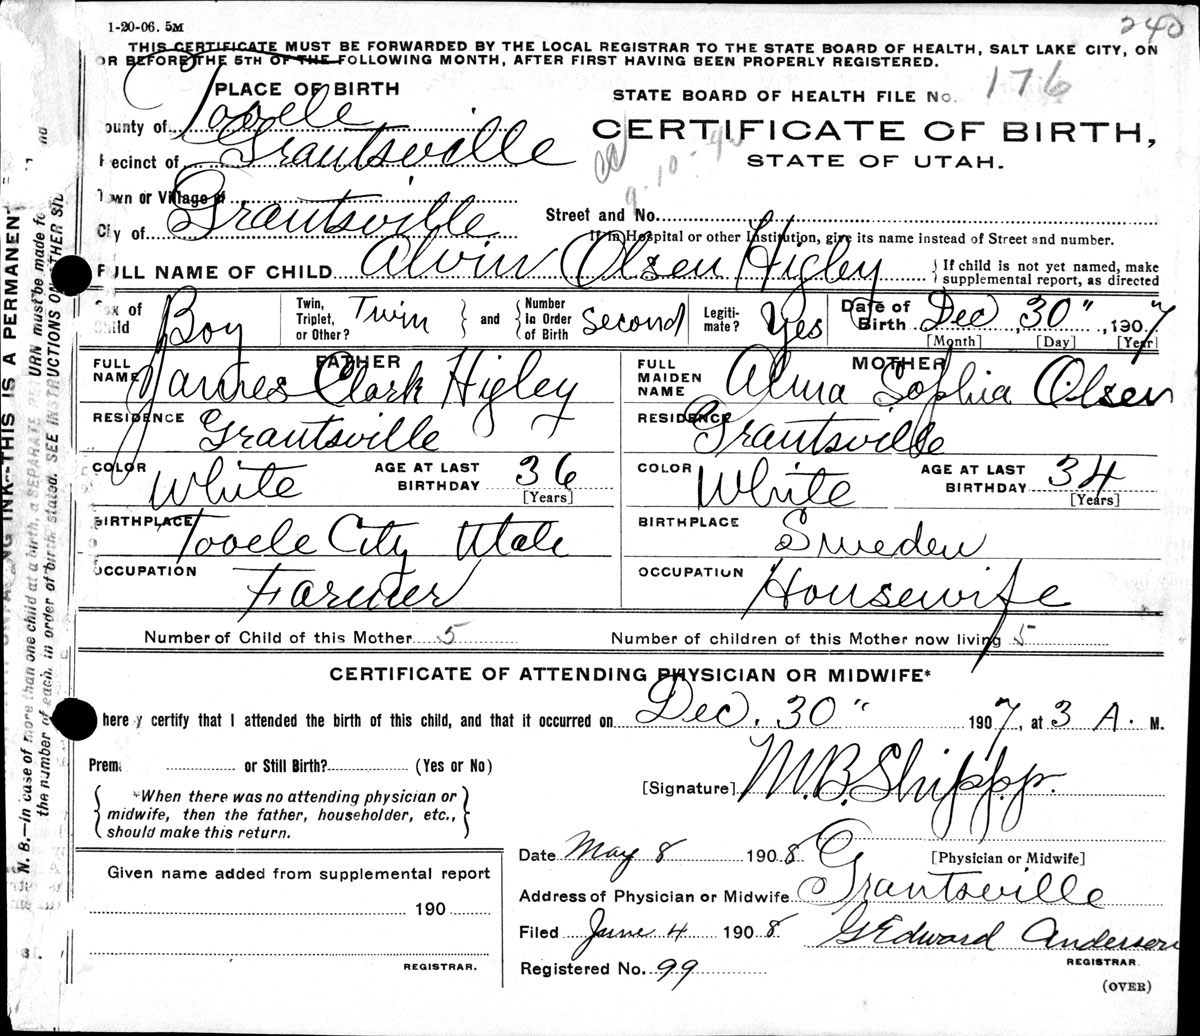 1-20-06. 5M
240
THIS CERTIFICATE MUST BE FORWARDED BY THE LOCAL REGISTRAR TO THE STATE BOARD OF HEALTH, SALT LAKE CITY, ON
OR BEFORE THE 5TH OF THE FOLLOWING MONTH, AFTER FIRST HAVING BEEN PROPERLY REGISTERED.
PLACE OF BIRTH
STATE BOARD OF HEALTH FILE No. 176
County of Tooele
CERTIFICATE OF BIRTH,
STATE OF UTAH.
Precinct of Grantsville
9-10-
Town or Village of
City of Grantsville
Street and No.
If in Hospital or other Institution, give its name instead of Street and number.
FULL NAME OF CHILD Alvin Olsen Higley { If child is not yet named, make supplemental report, as directed
Sex of Child Boy Twin, Triplet, or Other? Twin } and { Number In Order of Birth second Legiti-mate? Yes Date of Birth Dec, 30", 1907
[Month] [Day] [Year]
FATHER MOTHER
FULL NAME James Clark Higley FULL MAIDEN NAME Alma Sophia Olsen
RESIDENCE Grantsville RESIDENCE Grantsville
COLOR White AGE AT LAST BIRTHDAY 36 [Years] COLOR White AGE AT LAST BIRTHDAY 34 [Years]
BIRTHPLACE Tooele City Utah BIRTHPLACE Sweden
OCCUPATION Farmer OCCUPATION Housewife
Number of Child of this Mother 5 Number of children of this Mother now living 5
CERTIFICATE OF ATTENDING PHYSICIAN OR MIDWIFE*
hereby certify that I attended the birth of this child, and that it occurred on Dec. 30" 1907, at 3 A. M.
Prem. or Still Birth? (Yes or No)
[Signature] M.B. Shipp.
*When there was no attending physician or
midwife, then the father, householder, etc.,
should make this return.
[Physician or Midwife]
Date May 8 1908
Given name added from supplemental report
190
REGISTRAR.
Address of Physician or Midwife Grantsville
Filed June 4 1908 G Edward Anderson
REGISTRAR
Registered No. 99
(OVER)
ING INK--THIS IS A PERMANEN
N. B.—In case of more than one child at a birth, a SEPARATE RETURN must be made fo
the number of each, in order of birth, stated. SEE INSTRUCTIONS ON OTHER SID